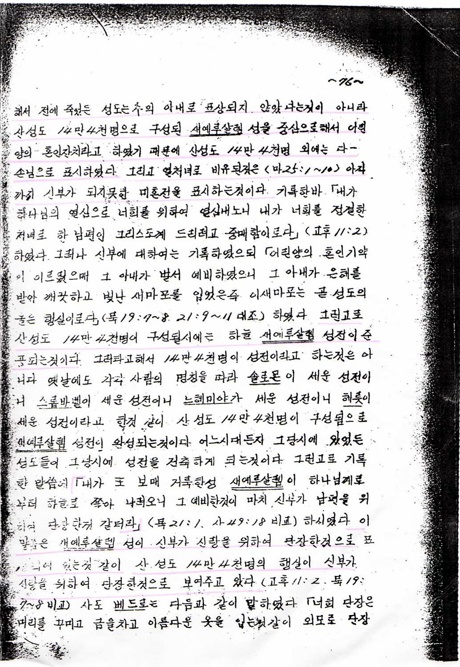 ~76~
해서 전에 죽었든 성도는 주의 아내로 표상되지 않았다는것이 아니라
산성도 14만4천명으로 구성된 새예루살렘 성을 중심으로해서 어린
양의 혼인잔치라고 하였기 때문에 산성도 14만4천명 외에는 다-
손님으로 표시하였다. 그리고 열처녀로 비유된것은 (마25:1~10) 아직
까지 신부가 되지못한 미혼전을 표시하는것이다. 기록한바 「내가
하나님의 열심으로 너희를 위하여 열심내노니 내가 너희를 정결한
처녀로 한 남편인 그리스도께 드리려고 중매함이로다」 (고후11:2)
하였다. 그러나 신부에 대하여는 기록하였으되 「어린양의 혼인기약
이 이르렀으매 그 아내가 벌서 예비하였으니 그 아내가 은혜를
받아 깨끗하고 빛난 세마포를 입었은즉 이세마포는 곧 성도의
옳은 행실이로다」 (묵19:7~8 21:9~11 대조) 하였다 그런고로
산성도 14만4천명이 구성될시에는 하늘 새예루살렘 성전이 준
공되는것이다. 그러타고해서 14만4천명이 성전이라고 하는것은 아
니다 옛날에도 각각 사람의 명칭을 따라 솔로몬이 세운 성전이
니 스룹바벨이 세운 성전이니 느헤미야가 세운 성전이니 헤롯이
세운 성전이라고 한것 같이 산 성도 14만4천명이 구성됨으로
새예루살렘 성전이 완성되는것이다 어느시대든지 그당시에 있었든
성도들이 그당시에 성전을 건축하게 되는것이다 그런고로 기록
한 말씀의 「내가 또 보매 거룩한성 새예루살렘이 하나님께로
부터 하늘로 쫓아 나려오니 그 예비한것이 마치 신부가 남편을 위
하여 단장한것 같터라」 (묵21:1. 사49:18 비교) 하시였다 이
말씀은 새예루살렘 성이 신부가 신랑을 위하여 단장한것으로 표
있는것 같이 산 성도 14만4천명의 행실이 신부가
신랑을 위하여 단장한것으로 보여주고 있다 (고후11:2. 묵19:
7~8 비교) 사도 베드로는 다음과 같이 말하였다 「너희 단장은
머리를 꾸미고 금을차고 아름다운 옷을 입는것같이 외모로 단장